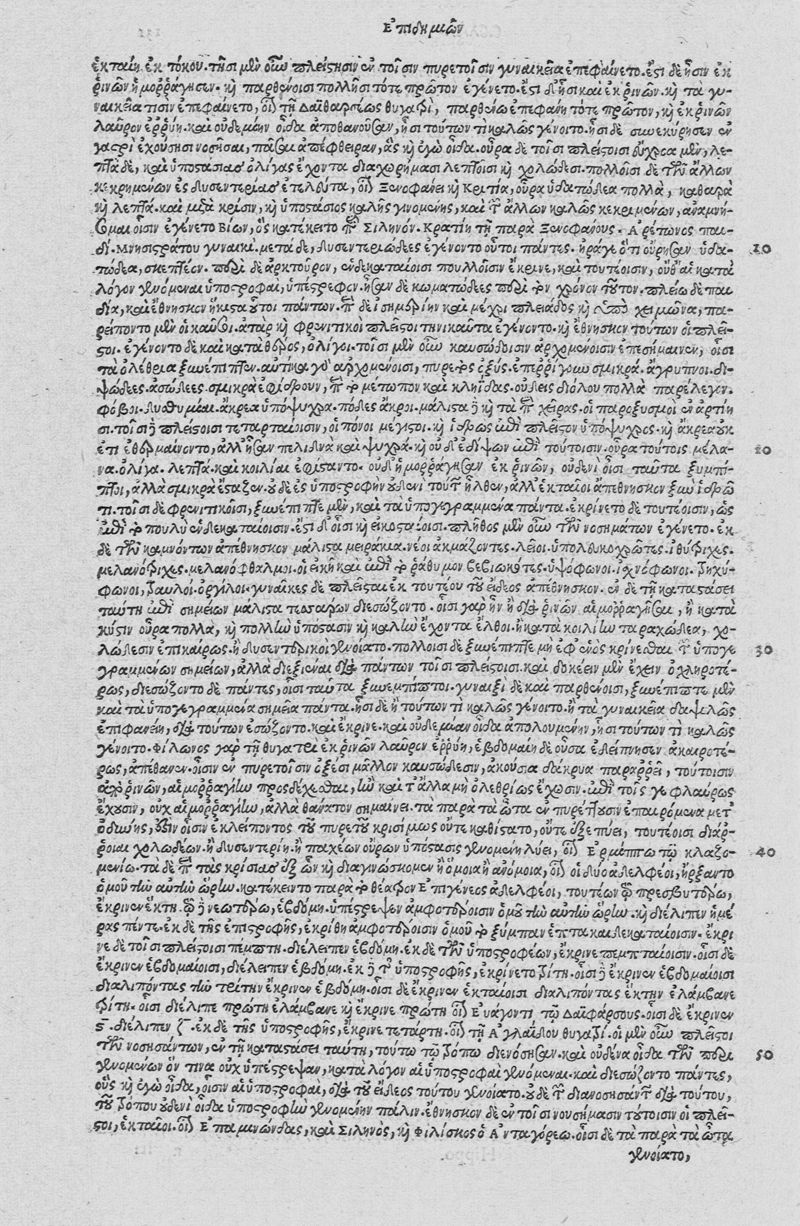 Ἐπιδημιῶν
ἑκταίη ἐκ τόκου. τῇσι μὲν οὖν πλείστῃσιν ἐν τοῖσιν πυρετοῖσιν γυναικεῖα ἐπεφαίνετο. ἔστι δὲ ᾗσιν ἐκ
ῥινῶν ᾑμορράγησεν. καὶ παρθένοισι πολλῇσι τότε πρῶτον ἐγένετο. ἔστι δ' ᾗσι καὶ ἐκ ῥινῶν. καὶ τὰ γυ-
ναικεῖα τισὶν ἐπεφαίνετο, οἷον τῇ Δαϊθαρσέως θυγατρὶ, παρθένῳ ἐπεφάνη τότε πρῶτον, καὶ ἐκ ῥινῶν
λαῦρον ἐρρύη. καὶ οὐδεμίην οἶδα ἀποθανοῦσαν, ᾗσι τούτων τι καλῶς γένοιτο. ᾗσι δὲ συνεκύρησεν ἐν
γαστρὶ ἐχούσῃσι νοσῆσαι, πᾶσαι ἀπέφθειραν, ἃς καὶ ἐγὼ οἶδα. οὖρα δὲ τοῖσι πλείστοισι εὔχροα μὲν, λε-
πτὰ δὲ, καὶ ὑποστάσιας ὀλίγας ἔχοντα διαχωρήμασι λεπτοῖσι καὶ χολώδεσι. πολλοῖσι δὲ τῶν ἄλλων
κεκριμένων ἐς δυσεντερίας ἐτελεύτα, οἷον Ξενοφάνει καὶ Κριτίᾳ, οὖρα ὑδατώδεα πολλὰ, καθαρὰ
καὶ λεπτὰ. καὶ μετὰ κρίσιν, καὶ ὑποστάσιος καλῆς γινομένης, καὶ τῶν ἄλλων καλῶς κεκριμένων, ἀναμνή-
σομαι οἷσιν ἐγένετο Βίων, ὃς κατέκειτο παρὰ Σιληνόν. Κρατίη τῇ παρὰ Ξενοφάνους. Ἀρέτωνος παι-
δὶ. Μνησιστράτου γυναικὶ. μετὰ δὲ, δυσεντεριώδεες ἐγένοντο οὗτοι πάντες. ἦρά γε ὅτι οὔρησαν ὑδα- 10
τώδεα, σκεπτέον. περὶ δὲ ἀρκτοῦρον, ἑνδεκαταίοισι πουλλοῖσιν ἔκρινε, καὶ τουτέοισιν, οὐδ' αἱ κατὰ
λόγον γινόμεναι ὑποστροφαὶ, ὑπέστρεφον. ἦσαν δὲ κωματώδεες περὶ τὸν χρόνον τοῦτον. πλείω δὲ παι
δία, καὶ ἔθνησκον ἥκιστα οὗτοι πάντων. περὶ δὲ ἰσημερίην καὶ μέχρι πλειάδος καὶ ὑπὸ χειμῶνα, πα-
ρείποντο μὲν οἱ καῦσοι. ἀτὰρ καὶ φρενιτικοὶ πλεῖστοι τηνικαῦτα ἐγένοντο. καὶ ἔθνησκον τούτων οἱ πλεῖ-
στοι. ἐγένοντο δὲ καὶ κατὰ θέρος, ὀλίγοι. τοῖσι μὲν οὖν καυσώδεσιν ἀρχομένοισιν ἐπεσήμαινεν, οἷσι
τὰ ὀλέθρια ξυνέπιπτεν. αὐτίκα γὰρ ἀρχομένοισι, πυρετὸς ὀξύς. ἐπερρίγουν σμικρά. ἄγρυπνοι. δι-
ψώδεες. ἀσώδεες. σμικρὰ ἐφίδρουν, περὶ τὸ μέτωπον καὶ κληῗδας. οὐδεὶς διόλου πολλὰ παρέλεγον.
φόβοι. δυσθυμίαι. ἄκρεα ὑπόψυχρα. πόδες ἄκροι. μάλιστα δὲ καὶ τὰ περὶ χεῖρας. οἱ παροξυσμοὶ ἐν ἀρτίῃ
σι. τοῖσι δὲ πλείστοισι τεταρταίοισιν, οἱ πόνοι μέγιστοι. καὶ ἱδρὼς ἐπὶ πλεῖστον ὑπόψυχρος. καὶ ἄκρεα οὐκ
ἔτι ἐθερμαίνοντο, ἀλλ' ἦσαν πελιδνὰ καὶ ψυχρὰ. καὶ οὐδ' ἐδίψων ἐπὶ τούτοισιν. οὖρα τούτοις μέλα- 20
να. ὀλίγα. λεπτὰ. καὶ κοιλίαι ἐφίσταντο. οὐδ' ᾑμορράγησεν ἐκ ῥινῶν, οὐδενὶ οἷσι ταῦτα ξυμπί-
πτοι, ἀλλὰ σμικρὰ ἔσταξεν. οὐδ' ἐς ὑποστροφὴν οὐδενὶ τούτων ἦλθεν, ἀλλ' ἑκταῖοι ἀπέθνησκον ξὺν ἱδρῶ
τι. τοῖσι δὲ φρενιτικοῖσι, ξυνέπιπτε μὲν, καὶ τὰ ὑπογεγραμμένα πάντα. ἐκρίνετο δὲ τουτέοισιν, ὡς
ἐπὶ τὸ πουλὺ ἑνδεκαταίοισιν. ἔστι δ' οἷσι καὶ εἰκοσταίοισι. πλῆθος μὲν οὖν τῶν νοσημάτων ἐγένετο. ἐκ
δὲ τῶν καμνόντων ἀπέθνησκον μάλιστα μειράκια. νέοι ἀκμάζοντες. λεῖοι. ὑπολευκόχρωτες. ἰθύτριχες.
μελανότριχες. μελανόφθαλμοι. οἱ εἰκῆ καὶ ἐπὶ τὸ ῥᾴθυμον βεβιωκότες. ὑψόφωνοι. ἰσχνόφωνοι. τρηχύ-
φωνοι, τραυλοί. ὀργίλοι. γυναῖκες δὲ πλεῖσται ἐκ τουτέου τοῦ εἴδεος ἀπέθνησκον. ἐν δὲ τῇ καταστάσει
ταύτῃ ἐπὶ σημείων μάλιστα τεσσάρων διεσώζοντο. οἷσι γὰρ ἦν ἢ διὰ ῥινῶν αἱμορραγῆσαι, ἢ κατὰ
κύστιν οὖρα πολλὰ, καὶ πολλὴν ὑπόστασιν καὶ καλὴν ἔχοντα ἔλθοι. ἢ κατὰ κοιλίην ταραχώδεα, χο-
λώδεσιν ἐπικαίρως. ἢ δυσεντερικοὶ γενοίατο. πολλοῖσι δὲ ξυνέπιπτε μὴ ἐφ' ἑνὸς κρίνεσθαι τῶν ὑπογε 30
γραμμένων σημείων, ἀλλὰ διεξιέναι διὰ πάντων τοῖσι πλείστοισι. καὶ δοκέειν μὲν ἔχειν ὀχληροτέ-
ρως, διεσώζοντο δὲ πάντες, οἷσι ταῦτα ξυνεμπίπτοι. γυναιξὶ δὲ καὶ παρθένοισι, ξυνέπιπτε μὲν
καὶ τὰ ὑπογεγραμμένα σημεῖα πάντα. ᾗσι δὲ ἢ τούτων τι καλῶς γένοιτο. ἢ τὰ γυναικεῖα δαψιλῶς
ἐπιφανείη, διὰ τούτων ἐσώζοντο. καὶ ἔκρινε. καὶ οὐδεμίαν οἶδα ἀπολουμένην, ᾗσι τούτων τι καλῶς
γένοιτο. Φίλωνος γὰρ τῇ θυγατρὶ ἐκ ῥινῶν λαῦρον ἐρρύη, ἑβδομαίη δὲ οὖσα ἐδείπνησεν ἀκαιροτέ-
ρως, ἀπέθανεν. οἷσιν ἐν πυρετοῖσιν ὀξέσι μᾶλλον καυσώδεσιν, ἀκούσια δάκρυα παραρρεῖ, τούτοισιν
ἀπὸ ῥινῶν, αἱμορραγίην προσδέχεσθαι, ἢν καὶ τἄλλα μὴ ὀλεθρίως ἔχωσιν. ἐπὶ τοῖς γε φλαύρως
ἔχουσιν, οὐχ αἱμορραγίην, ἀλλὰ θάνατον σημαίνει. τὰ παρὰ τὰ ὦτα ἐν πυρετοῖσιν ἐπαιρόμενα μετ'
ὀδύνης, ἔστιν οἷσιν ἐκλείποντος τοῦ πυρετοῦ κρισίμως οὔτε καθίστατο, οὔτε ἐξεπύει, τουτέοισι διάρ-
ροιαι χολώδεων. ἢ δυσεντερίη. ἢ παχέων οὔρων ὑπόστασις γενομένη λύει, οἷον Ἑρμίππῳ τῷ κλαζο- 40
μενίῳ. τὰ δὲ περὶ τὰς κρίσιας ἐξ ὧν καὶ διαγινώσκομεν ἢ ὅμοια ἢ ἀνόμοια, οἷον οἱ δύο ἀδελφεοὶ, ἤρξαντο
ὁμοῦ τὴν αὐτὴν ὥρην. κατέκειντο παρὰ τὸ θέατρον Ἐπιγένεος ἀδελφεοὶ, τουτέων τῷ πρεσβυτέρῳ,
ἔκρινεν ἕκτῃ. τῷ δὲ νεωτέρῳ, ἑβδόμῃ. ὑπέστρεψεν ἀμφοτέροισιν ὁμοῦ τὴν αὐτὴν ὥρην. καὶ διέλιπεν ἡμέ
ρας πέντε. ἐκ δὲ τῆς ἐπιστροφῆς, ἐκρίθη ἀμφοτέροισιν ὁμοῦ τὸ ξύμπαν ἑπτακαιδεκαταίοισιν. ἔκρι
νε δὲ τοῖσι πλείστοισι πέμπτῃ. διέλειπεν ἑβδόμῃ. ἐκ δὲ τῶν ὑποστροφέων, ἔκρινε πεμπταίοισιν. οἷσι δὲ
ἔκρινεν ἑβδομαίοισι, διέλειπεν ἑβδόμῃ. ἐκ δὲ τῆς ὑποστροφῆς, ἐκρίνετο τρίτῃ. οἷσι δὲ ἔκρινεν ἑβδομαίοισι
διαλιπόντας τὴν τρίτην ἔκρινεν ἑβδόμῃ. οἷσι δὲ ἔκρινεν ἑκταίοισι διαλιπόντας ἕκτην ἐλάμβανε
τρίτῃ. οἷσι διέλιπε πρώτῃ ἐλάμβανε καὶ ἔκρινε πρώτῃ οἷον Εὐάγοντι τῷ Δαϊφάρσους. οἷσι δὲ ἔκρινεν
ϛ. διέλιπεν ζ. ἐκ δὲ τῆς ὑποστροφῆς, ἔκρινε τετάρτῃ. οἷον τῇ Ἀγλαΐδου θυγατρί. οἱ μὲν οὖν πλεῖστοι
τῶν νοσησάντων, ἐν τῇ καταστάσει ταύτῃ, τούτῳ τῷ τρόπῳ διενόσησαν. καὶ οὐδένα οἶδα τῶν περι 50
γενομένων ὅν τινα οὐχ ὑπέστρεψαν, κατὰ λόγον αἱ ὑποστροφαὶ γενόμεναι. καὶ διεσώζοντο πάντες,
οὓς καὶ ἐγὼ οἶδα, οἷσιν αἱ ὑποστροφαὶ, διὰ τοῦ εἴδεος τούτου γενοίατο. οὐδὲ τῶν διανοσησάντων διὰ τούτου,
τοῦ τρόπου οὐδενὶ οἶδα ὑποστροφὴν γενομένην πάλιν. ἔθνησκον δὲ ἐν τοῖσι νουσήμασιν τούτοισιν οἱ πλεῖ-
στοι, ἑκταῖοι. οἷον Ἐπαμινώνδας, καὶ Σιληνὸς, καὶ Φιλίσκος ὁ Ἀνταγόρεω. οἷσι δὲ τὰ παρὰ τὰ ὦτα
γενοίατο,